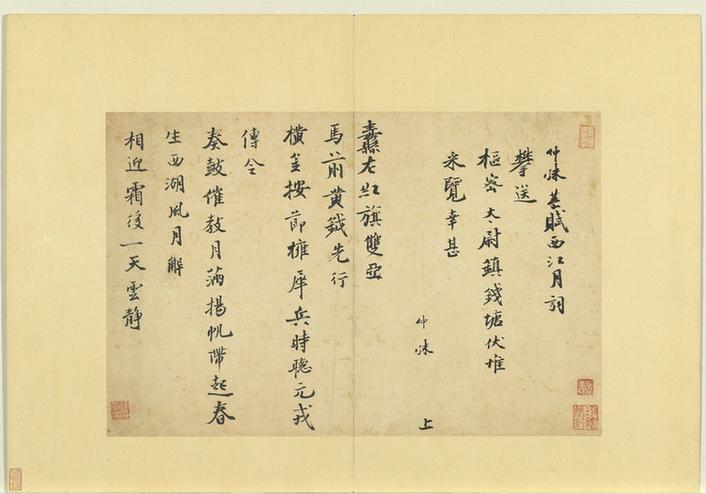 仲殊恭賦西江月詞
攀送
樞密太尉鎮錢塘伏惟
采覽幸甚
仲殊 上
纛左紅旗雙亞
馬前黃鉞先行
橫金按節擁犀兵時聽元戎
傳令
奏鼓催教月滿揚帆帶起春
生西湖風月解
相迎霜後一天雲靜